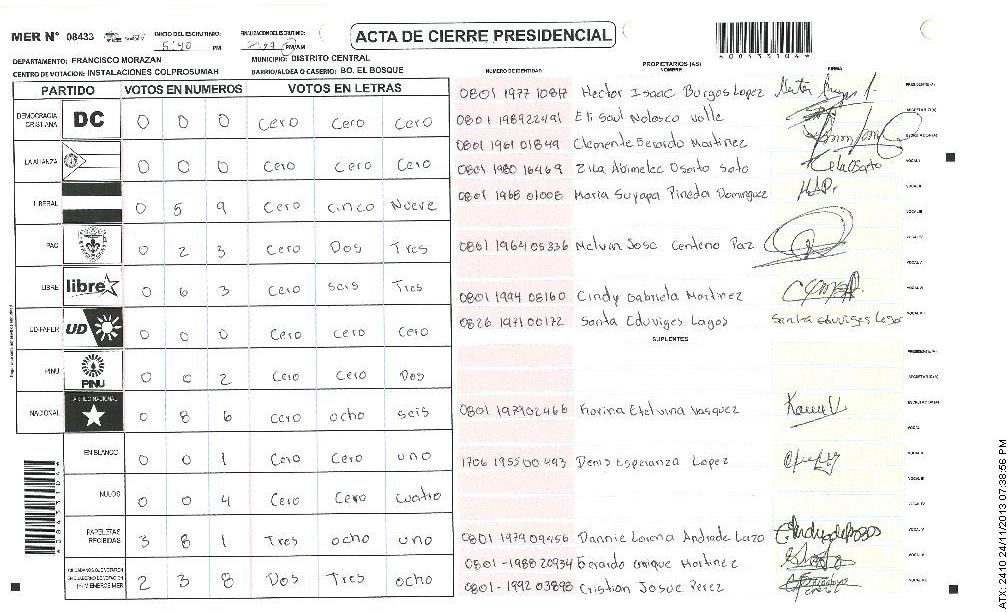 MER N° 08433
INICIO DEL ESCRUTINIO:
5:40 PM
FINALIZACION DEL ESCRUTINIO:
PM/AM
ACTA DE CIERRE PRESIDENCIAL
DEPARTAMENTO: FRANCISCO MORAZAN
MUNICIPIO: DISTRITO CENTRAL
CENTRO DE VOTACION: INSTALACIONES COLPROSUMAH
BARRIO/ALDEA O CASERIO: BO. EL BOSQUE
PARTIDO VOTOS EN NUMEROS VOTOS EN LETRAS
DEMOCRACIA CRISTIANA DC 0 0 0 Cero Cero Cero
LA ALIANZA 0 0 0 Cero Cero Cero
LIBERAL 0 5 9 Cero Cinco Nueve
PAC 0 2 3 Cero Dos Tres
LIBRE libre 0 6 3 Cero Seis Tres
UD-FAPER UD 0 0 0 Cero Cero Cero
PINU PINU 0 0 2 Cero Cero Dos
NACIONAL PARTIDO NACIONAL 0 8 6 Cero ocho seis
EN BLANCO 0 0 1 Cero Cero uno
NULOS 0 0 4 Cero Cero cuatro
PAPELETAS RECIBIDAS 3 8 1 Tres ocho uno
CIUDADANOS QUE VOTARON 2 3 8 Dos Tres ocho
NUMERO DE IDENTIDAD PROPIETARIOS (AS) NOMBRE FIRMA
Hector Isaac Burgos Lopez PRESIDENTE(A)
0801 198922491 Eli Saul Nolasco Valle SECRETARIO(A)
0801 1961 01849 Clemente Gerardo Martinez ESCRUTADOR(A)
0801 1980 16469 Zila Abimelec Osorto Soto VOCAL I
0801 1968 01008 Maria Suyapa Pineda Dominguez VOCAL II
VOCAL III
0801 1964 05336 Melvin Jose Centeno Paz VOCAL IV
VOCAL V
0801 1994 08160 Cindy Gabriela Martinez VOCAL VI
0826 1971 00172 Santa Eduviges Lagos Santa Eduviges Lagos
SUPLENTES
PRESIDENTE(A)
SECRETARIO(A)
0801 1979 02466 Etelvina Vasquez ESCRUTADOR(A)
VOCAL I
1706 1955 00493 Denis Esperanza Lopez VOCAL II
VOCAL III
VOCAL IV
0801 1979 09456 Dannie Lorena Andrade Lazo VOCAL V
0801-1988 20934 Gerardo Enrique Martinez
0801-1992 03898 Cristian Josue Perez
ATX-2410 24/11/2013 07:38:56 PM